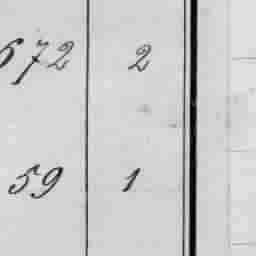 672 2
59 1